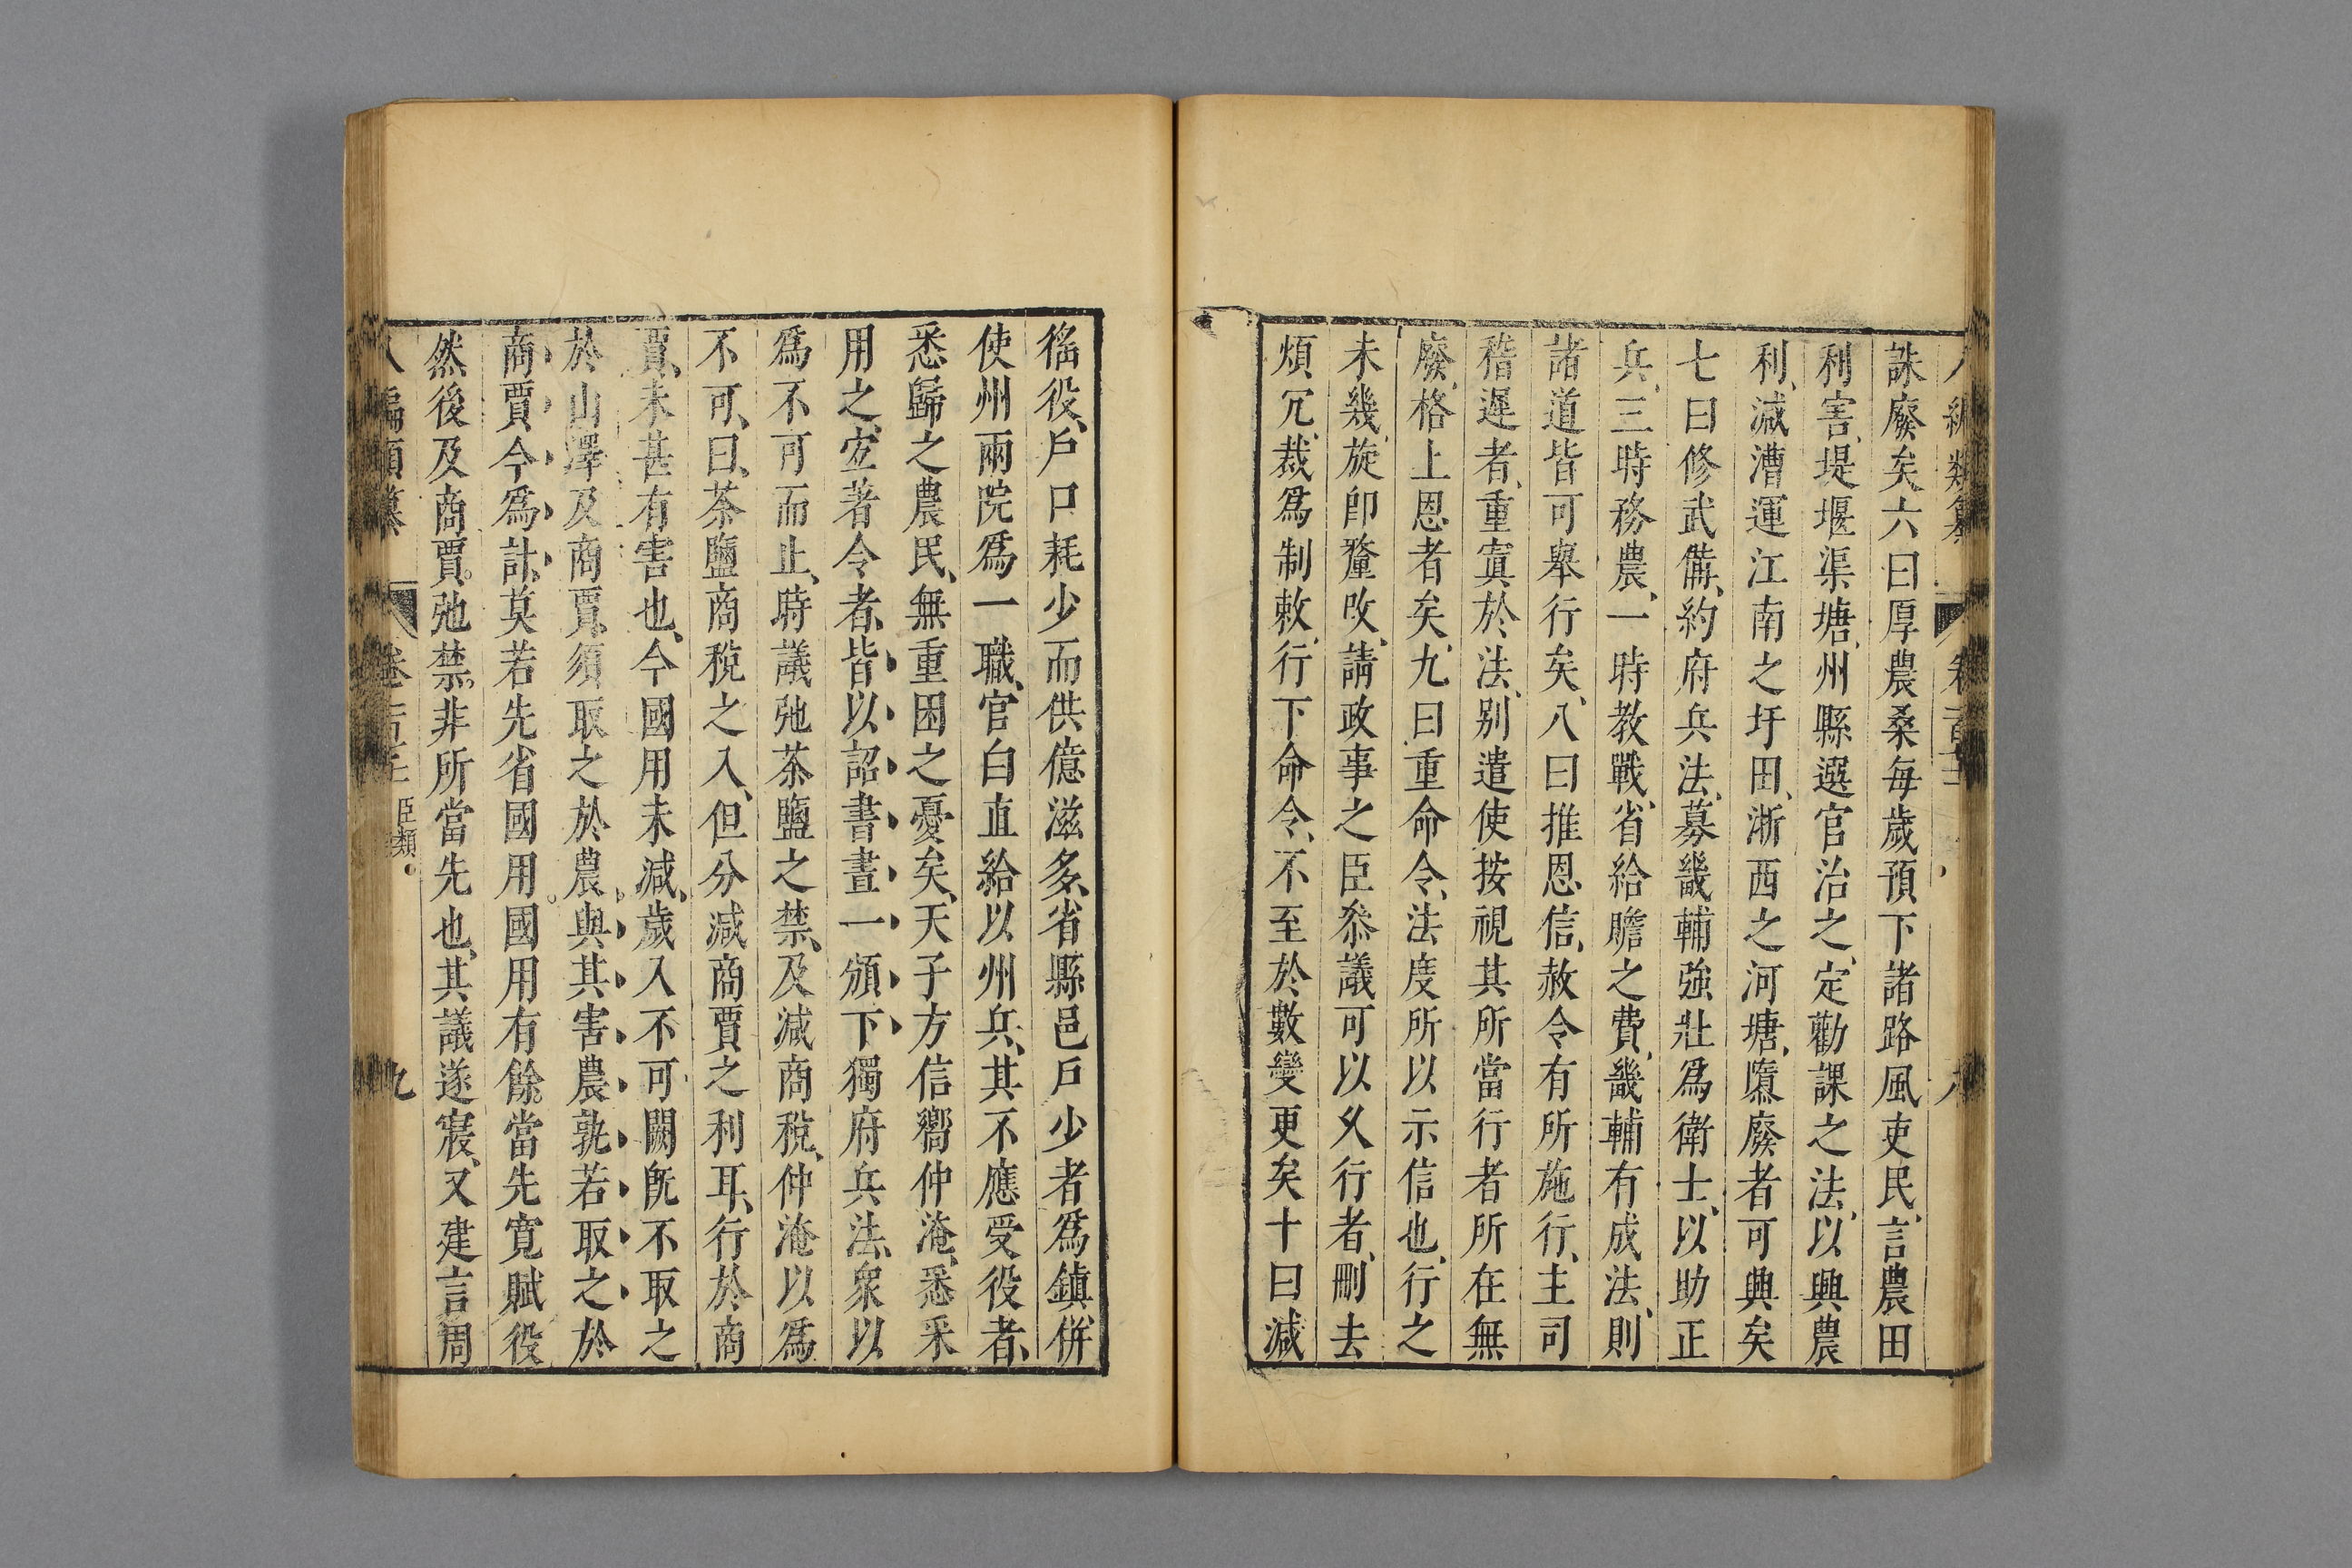 誅廢矣六曰厚農桑每歲預下諸路風吏民言農田
利害堤堰渠塘州縣選官治之定勸課之法以興農
利減漕運江南之圩田浙西之河塘隳廢者可興矣
七曰修武備約府兵法募畿輔強壯爲衛士以助正
兵三時務農一時教戰省給贍之費畿輔有成法則
諸道皆可舉行矣八曰推恩信赦令有所施行主司
稽遲者重寘於法別遣使按視其所當行者所在無
廢格上恩者矣九曰重命令法度所以示信也行之
未幾旋卽釐改請政事之臣叅議可以久行者刪去
煩冗裁爲制敕行下命令不至於數變更矣十曰減
徭役戶口耗少而供億滋多省縣邑戶少者爲鎮併
使州兩院爲一職官白直給以州兵其不應受役者
悉歸之農民無重困之憂矣天子方信嚮仲淹悉釆
用之宜著令者皆以詔書畫一頒下獨府兵法衆以
爲不可而止時議弛茶鹽之禁及減商稅仲淹以爲
不可曰茶鹽商稅之入但分減商賈之利耳行於商
賈未甚有害也今國用未減歲入不可闕旣不取之
於山澤及商賈須取之於農與其害農孰若取之於
商賈今爲計莫若先省國用國用有餘當先寬賦役
然後及商賈弛禁非所當先也其議遂寢又建言周
八編類纂 卷 臣類 九